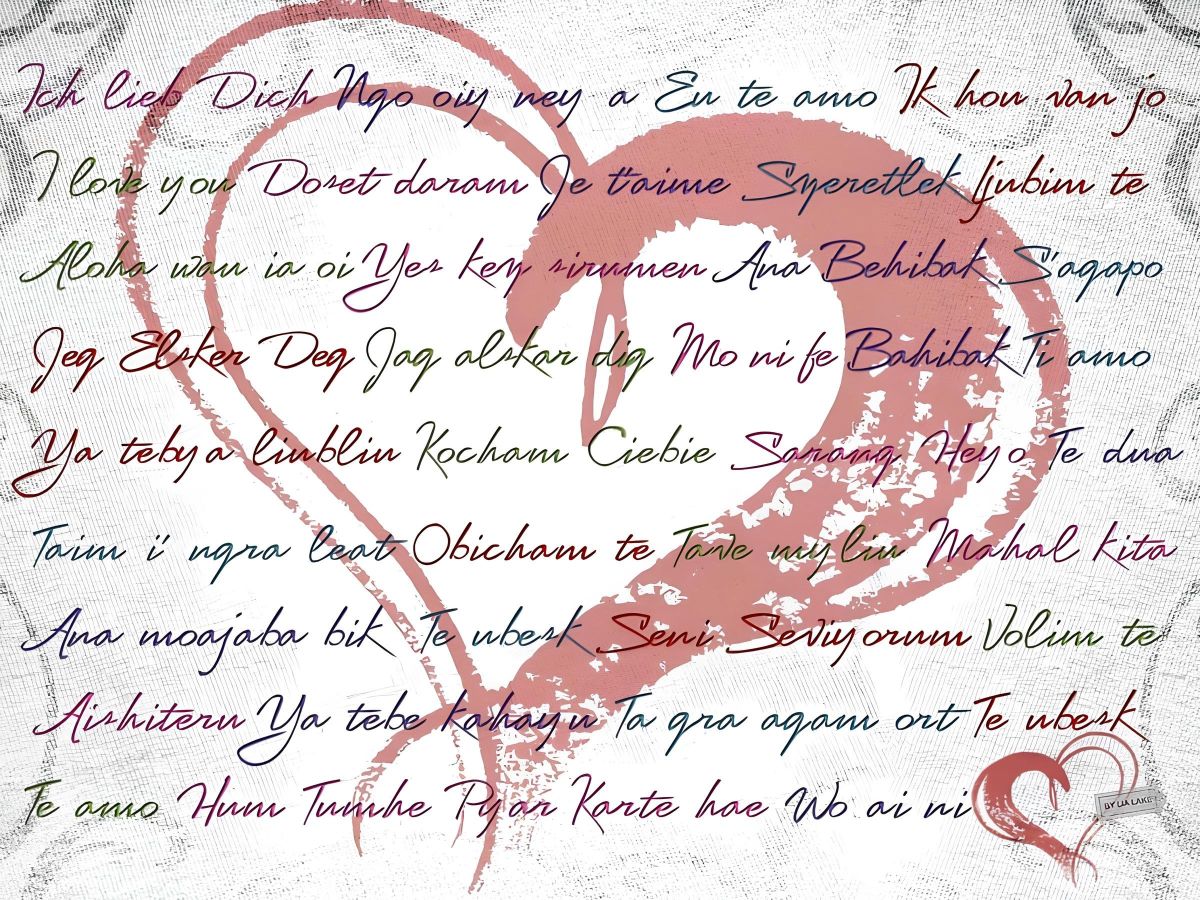 Ich lieb Dich Ngo oiy ney a Eu te amo Ik hou van jo
I love you Doset daram Je t'aime Szeretlek ljubim te
Aloha wau ia oi Yes key sirumen Ana Behibak S'agapo
Jeg Elsker Deg Jag alskar dig Mo ni fe Bahibak Ti amo
Ya tebya liubliu Kocham Ciebie Sarang Heyo Te dua
Taim i' ngra leat Obicham te Tave myliu Mahal kita
Ana moajaba bik Te ubesk Seni Seviyorum Volim te
Aishiteru Ya tebe kahayu Ta gra agam ort Te ubesk
Te amo Hum Tumhe Pyar Karte hae Wo ai ni
BY LIA LAKE